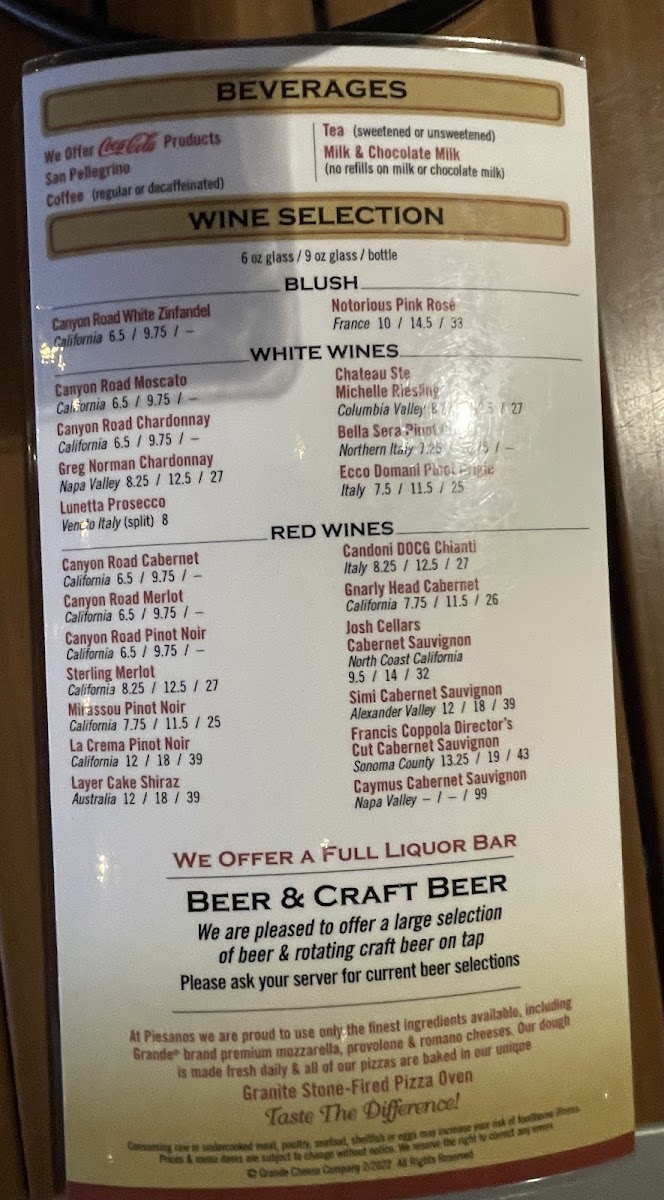 BEVERAGES
We Offer Coca-Cola Products
San Pellegrino
Coffee (regular or decaffeinated)
Tea (sweetened or unsweetened)
Milk & Chocolate Milk
(no refills on milk or chocolate milk)
WINE SELECTION
6 oz glass / 9 oz glass / bottle
BLUSH
Canyon Road White Zinfandel
California 6.5 / 9.75 / –
Notorious Pink Rosé
France 10 / 14.5 / 33
WHITE WINES
Canyon Road Moscato
California 6.5 / 9.75 / –
Canyon Road Chardonnay
California 6.5 / 9.75 / –
Greg Norman Chardonnay
Napa Valley 8.25 / 12.5 / 27
Lunetta Prosecco
Veneto Italy (split) 8
Chateau Ste
Michelle Riesling
Columbia Valley / 27
Bella Sera Pinot
Northern Italy 7.25 / / –
Ecco Domani Pinot Grigio
Italy 7.5 / 11.5 / 25
RED WINES
Canyon Road Cabernet
California 6.5 / 9.75 / –
Canyon Road Merlot
California 6.5 / 9.75 / –
Canyon Road Pinot Noir
California 6.5 / 9.75 / –
Sterling Merlot
California 8.25 / 12.5 / 27
Mirassou Pinot Noir
California 7.75 / 11.5 / 25
La Crema Pinot Noir
California 12 / 18 / 39
Layer Cake Shiraz
Australia 12 / 18 / 39
Candoni DOCG Chianti
Italy 8.25 / 12.5 / 27
Gnarly Head Cabernet
California 7.75 / 11.5 / 26
Josh Cellars
Cabernet Sauvignon
North Coast California
9.5 / 14 / 32
Simi Cabernet Sauvignon
Alexander Valley 12 / 18 / 39
Francis Coppola Director's
Cut Cabernet Sauvignon
Sonoma County 13.25 / 19 / 43
Caymus Cabernet Sauvignon
Napa Valley – / – / 99
WE OFFER A FULL LIQUOR BAR
BEER & CRAFT BEER
We are pleased to offer a large selection
of beer & rotating craft beer on tap
Please ask your server for current beer selections
At Piesanos we are proud to use only the finest ingredients available, including
Grande® brand premium mozzarella, provolone & romano cheeses. Our dough
is made fresh daily & all of our pizzas are baked in our unique
Granite Stone-Fired Pizza Oven
Taste The Difference!
Consuming raw or undercooked meat, poultry, seafood, shellfish or eggs may increase your risk of foodborne illness.
Prices & menu items are subject to change without notice. We reserve the right to correct any errors
© Grande Cheese Company 2/2022 All Rights Reserved